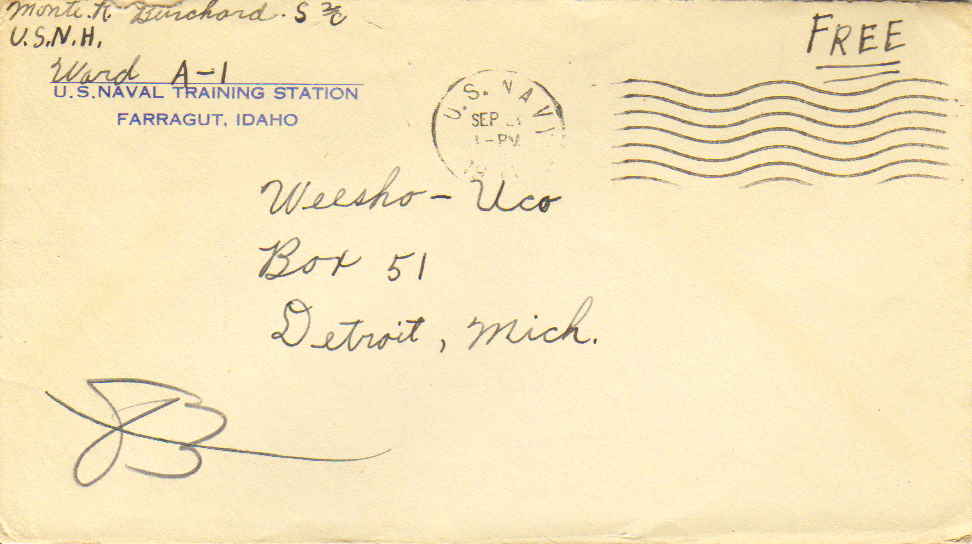 Monte. R. Burchard. S 2/c
U.S.N.H.
Ward A-1
U.S. NAVAL TRAINING STATION
FARRAGUT, IDAHO
U.S. NAVY
SEP
1-PM
FREE
Weesho - Uco
Box 51
Detroit, Mich.